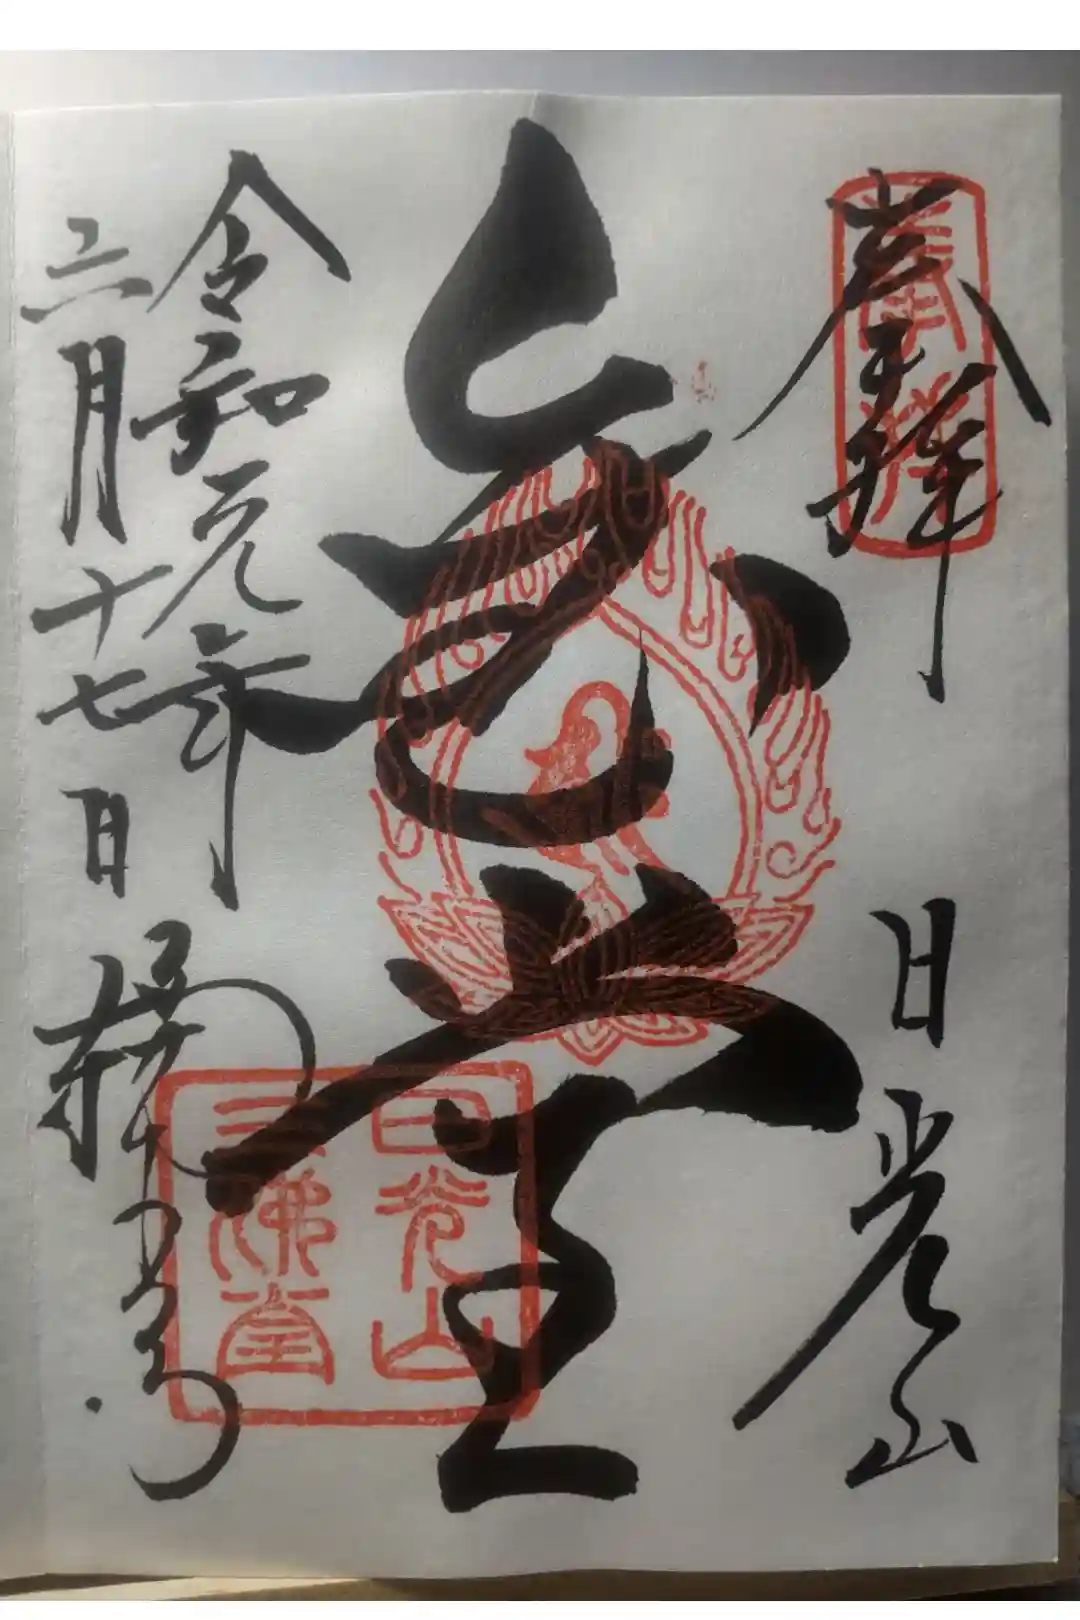 奉拝 日光山
奉拝
堂
令和元年
六月十七日
日光山
三佛堂